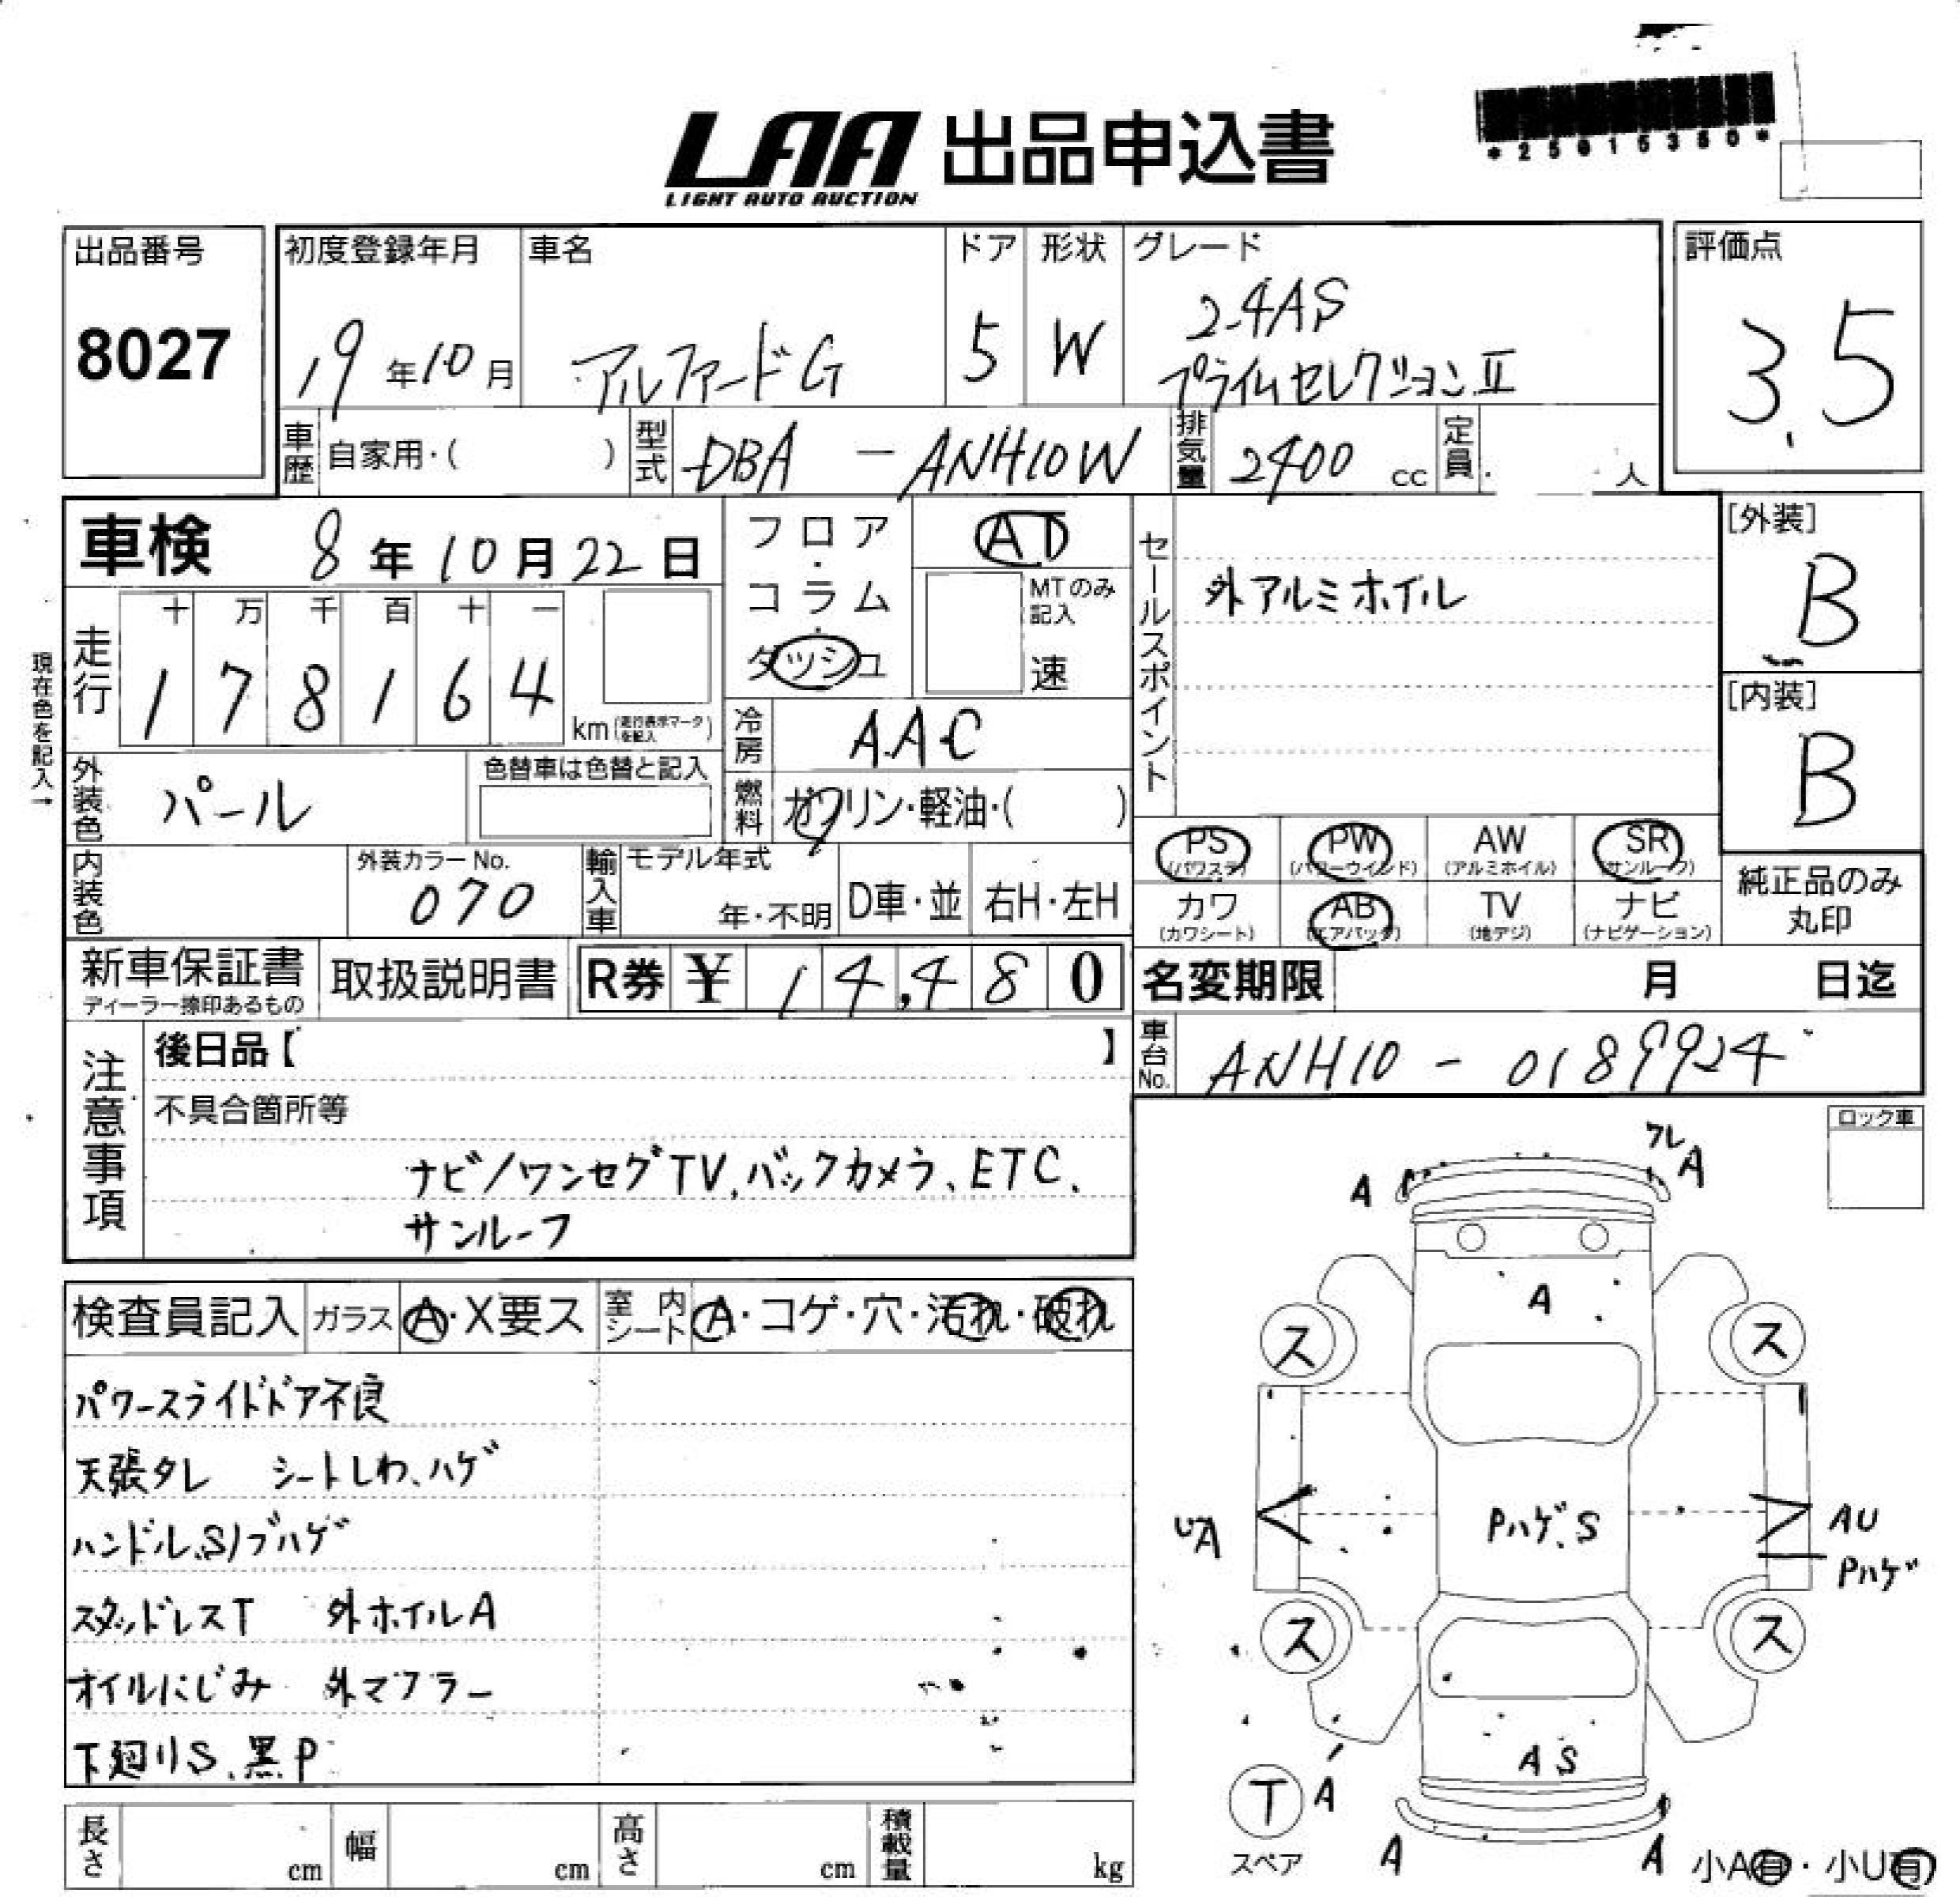 LAA 出品申込書
LIGHT AUTO AUCTION
*25015350*
出品番号
8027
初度登録年月
19年10月
車名
アルファードG
ドア
5
形状
W
グレード
2.4AS
プライムセレクションⅡ
評価点
3.5
車歴 自家用・( )
型式 DBA - ANH10W
排気量 2400 cc
定員 人
車検 8年10月22日
フロア・コラム・ダッシュ
AT
MTのみ記入
速
セールスポイント
外アルミホイル
[外装]
B
[内装]
B
現在色を記入→
走行
十 万 千 百 十 一
1 7 8 1 6 4
km (走行表示マークを記入)
冷房 AAC
燃料 ガソリン・軽油・( )
外装色 パール
色替車は色替と記入
内装色
外装カラーNo.
070
輸入車
モデル年式
年・不明
D車・並
右H・左H
PS (パワステ)
PW (パワーウインド)
AW (アルミホイル)
SR (サンルーフ)
カワ (カワシート)
AB (エアバック)
TV (地デジ)
ナビ (ナビゲーション)
純正品のみ
丸印
新車保証書
ディーラー捺印あるもの
取扱説明書
R券 ¥ 14,480
名変期限 月 日迄
車台No. ANH10 - 0189924
注意事項
後日品【 】
不具合箇所等
ナビ/ワンセグTV、バックカメラ、ETC、
サンルーフ
ロック車
検査員記入
ガラス A・X要ス
室内シート A・コゲ・穴・汚れ・破れ
パワースライドドア不良
天張タレ シートしわ、ハゲ
ハンドルS/ブハゲ
スタッドレスT 外ホイルA
オイルにじみ 外マフラー
下廻りS、黒P
ワレ
A
A
A
ス
ス
UA
Pハゲ、S
AU
Pハゲ
ス
ス
AS
T
A
スペア
A
A
小A有・小U有
長さ cm
幅 cm
高さ cm
積載量 kg